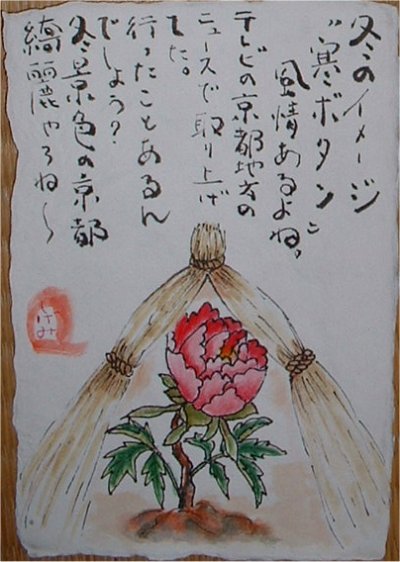 冬のイメージ
"寒ボタン"
風情あるよね。
テレビの京都地方の
ニュースで取り上げ
てた。
行ったことあるん
でしょう?
冬景色の京都
綺麗やろね〜